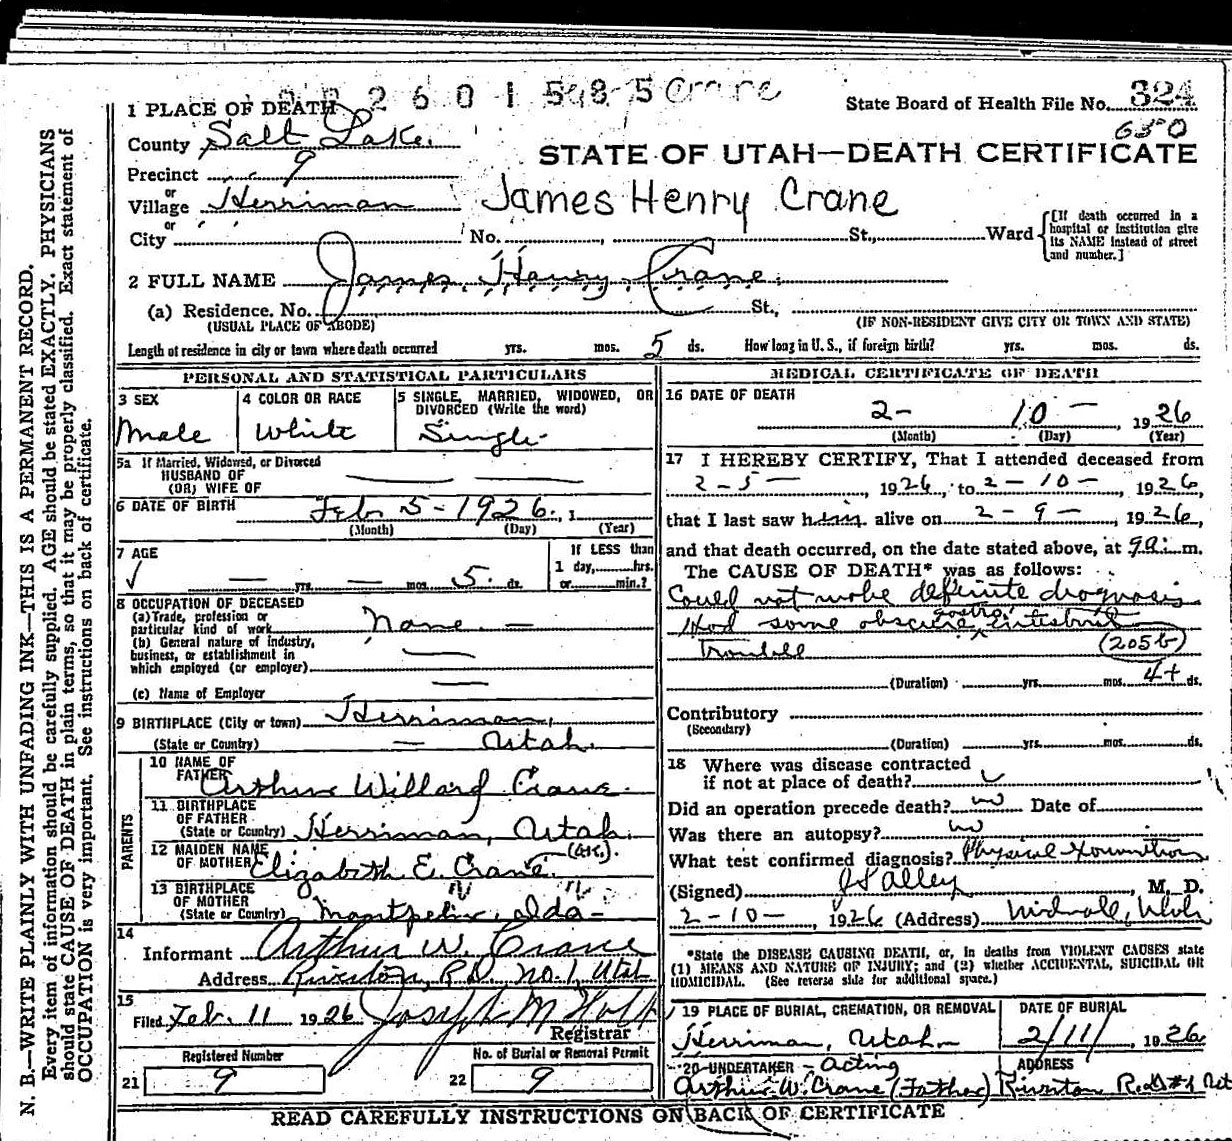 2 6 0 1 5 8 5 Crane
1 PLACE OF DEATH
State Board of Health File No. 324
County Salt Lake.
650
STATE OF UTAH—DEATH CERTIFICATE
Precinct 9
or
Village Herriman
James Henry Crane
or
City No. St., Ward
[If death occurred in a hospital or institution give its NAME instead of street and number.]
2 FULL NAME James Henry Crane.
(a) Residence. No. St.,
(USUAL PLACE OF ABODE) (IF NON-RESIDENT GIVE CITY OR TOWN AND STATE)
Length of residence in city or town where death occurred yrs. mos. 5 ds. How long in U. S., if foreign birth? yrs. mos. ds.
PERSONAL AND STATISTICAL PARTICULARS
3 SEX Male
4 COLOR OR RACE White
5 SINGLE, MARRIED, WIDOWED, OR DIVORCED (Write the word) Single
5a If Married, Widowed, or Divorced
HUSBAND OF
(OR) WIFE OF
6 DATE OF BIRTH Feb 5-1926., 1
(Month) (Day) (Year)
7 AGE
— yrs. — mos. 5. ds.
If LESS than
1 day, hrs.
or min.?
8 OCCUPATION OF DECEASED
(a) Trade, profession or
particular kind of work None —
(b) General nature of industry,
business, or establishment in
which employed (or employer)
(c) Name of Employer
9 BIRTHPLACE (City or town) Herriman,
(State or Country) — Utah.
PARENTS
10 NAME OF
FATHER Arthur Willard Crane.
11 BIRTHPLACE
OF FATHER
(State or Country) Herriman, Utah.
12 MAIDEN NAME
OF MOTHER Elizabeth E. Crane. (OK.).
13 BIRTHPLACE
OF MOTHER
(State or Country) Montpelier, Ida-
14
Informant Arthur W. Crane
Address Riverton, RD. no. 1, Utah
15
Filed Feb. 11 1926 Joseph M
Registrar
Registered Number
21 9
No. of Burial or Removal Permit
22 9
MEDICAL CERTIFICATE OF DEATH
16 DATE OF DEATH
2- 10 - 1926
(Month) (Day) (Year)
17 I HEREBY CERTIFY, That I attended deceased from
2-5- 1926, to 2-10-, 1926,
that I last saw him alive on 2-9-, 1926,
and that death occurred, on the date stated above, at 9a. m.
The CAUSE OF DEATH* was as follows:
Could not make definite diagnosis
Had some obscure gastro intestinal
Trouble (205b)
(Duration) yrs. mos. 4+ ds.
Contributory
(Secondary)
(Duration) yrs. mos. ds.
18 Where was disease contracted
if not at place of death?
Did an operation precede death? no Date of
Was there an autopsy? no
What test confirmed diagnosis? Physical Examination
(Signed) Alley, M. D.
2-10-, 1926 (Address) Midvale, Utah
*State the DISEASE CAUSING DEATH, or, in deaths from VIOLENT CAUSES state
(1) MEANS AND NATURE OF INJURY; and (2) whether ACCIDENTAL, SUICIDAL OR
HOMICIDAL. (See reverse side for additional space.)
19 PLACE OF BURIAL, CREMATION, OR REMOVAL
Herriman, Utah—
DATE OF BURIAL
2/11/ 1926
20 UNDERTAKER - Acting
Arthur W. Crane (Father)
ADDRESS
Riverton R.D#1 Ut
READ CAREFULLY INSTRUCTIONS ON BACK OF CERTIFICATE
N. B.—WRITE PLAINLY WITH UNFADING INK—THIS IS A PERMANENT RECORD.
Every item of information should be carefully supplied. AGE should be stated EXACTLY. PHYSICIANS
should state CAUSE OF DEATH in plain terms, so that it may be properly classified. Exact statement of
OCCUPATION is very important. See instructions on back of certificate.